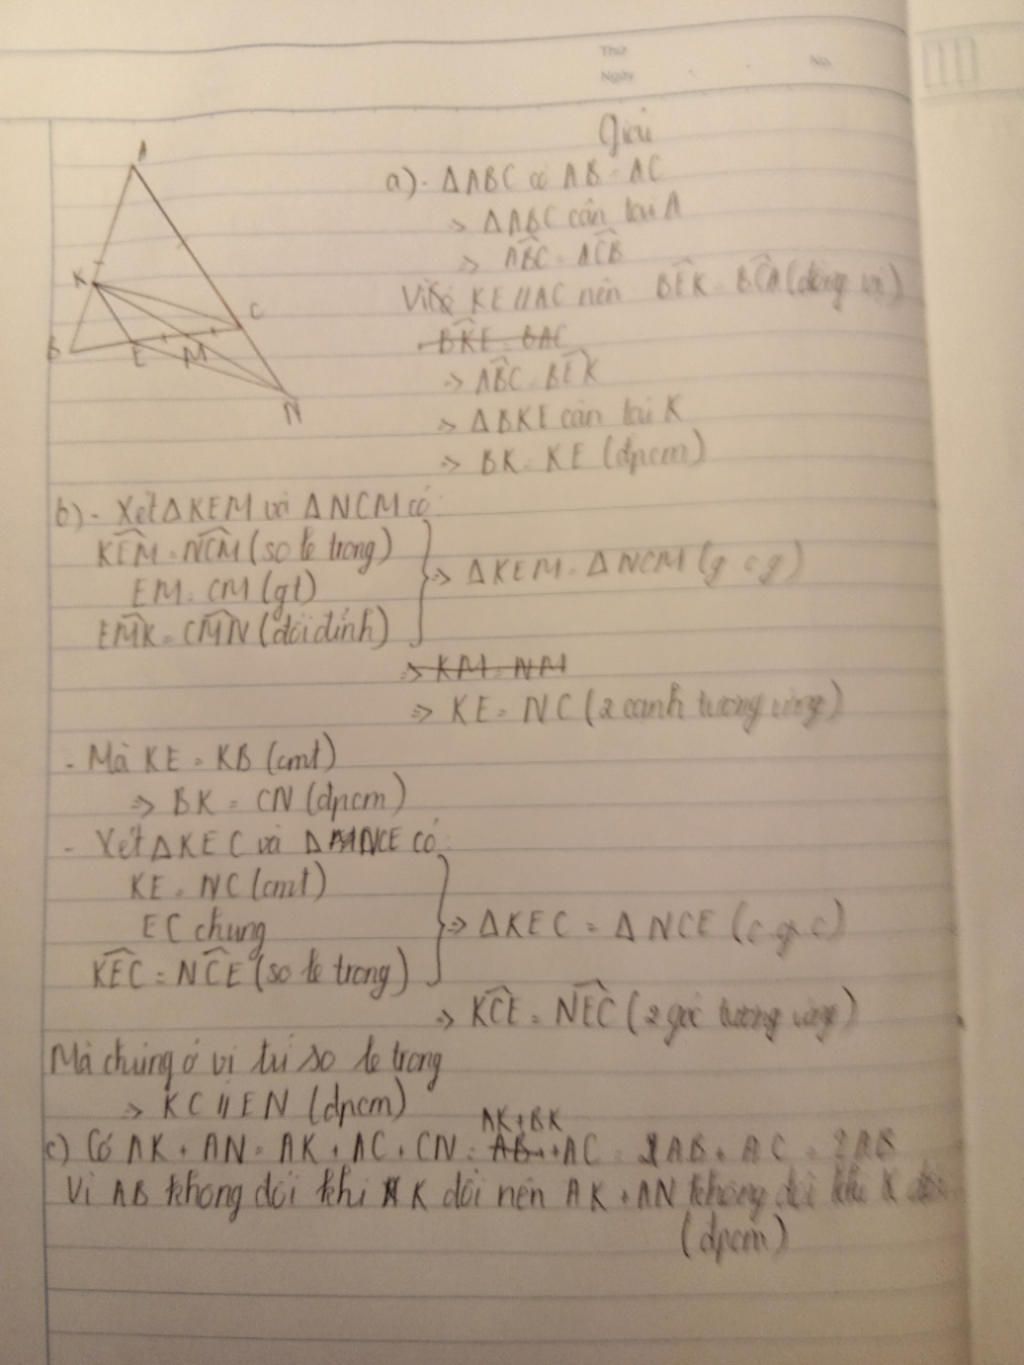 Thứ
Ngày
No.
Giải
A
K
B
E
M
C
N
a)- ΔABC có AB = AC
=> ΔABC cân tại A
=> ABC = ACB
Vì KE // AC nên BEK = BCA (đồng vị)
BKE = BAC
=> ABC = BEK
=> ΔBKE cân tại K
=> BK = KE (đpcm)
b) - Xét ΔKEM và ΔNCM có:
KEM = NCM (so le trong)
EM = CM (gt)
EMK = CMN (đối đỉnh)
=> ΔKEM = ΔNCM (g c g)
=> KM = NM
=> KE = NC (2 cạnh tương ứng)
- Mà KE = KB (cmt)
=> BK = CN (đpcm)
- Xét ΔKEC và ΔNCE có:
KE = NC (cmt)
EC chung
KEC = NCE (so le trong)
=> ΔKEC = ΔNCE (c g c)
=> KCE = NEC (2 góc tương ứng)
Mà chúng ở vị trí so le trong
=> KC // EN (đpcm)
AK + BK
c) Có AK + AN = AK + AC + CN = AB + AC = AB + AC = 2AB
Vì AB không đổi khi K đổi nên AK + AN không đổi khi K đổi
(đpcm)